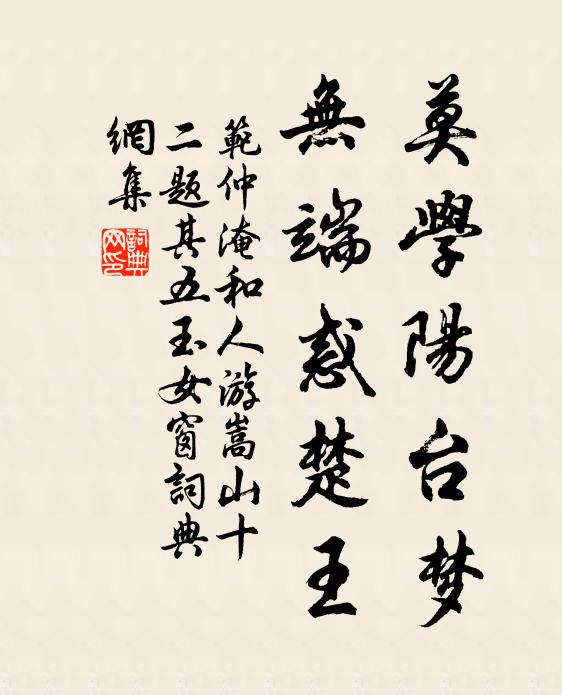 莫學陽台梦
無端惑楚王
範仲淹和人游嵩山十
二题其五玉女窗詞典
網集
詞典
网印